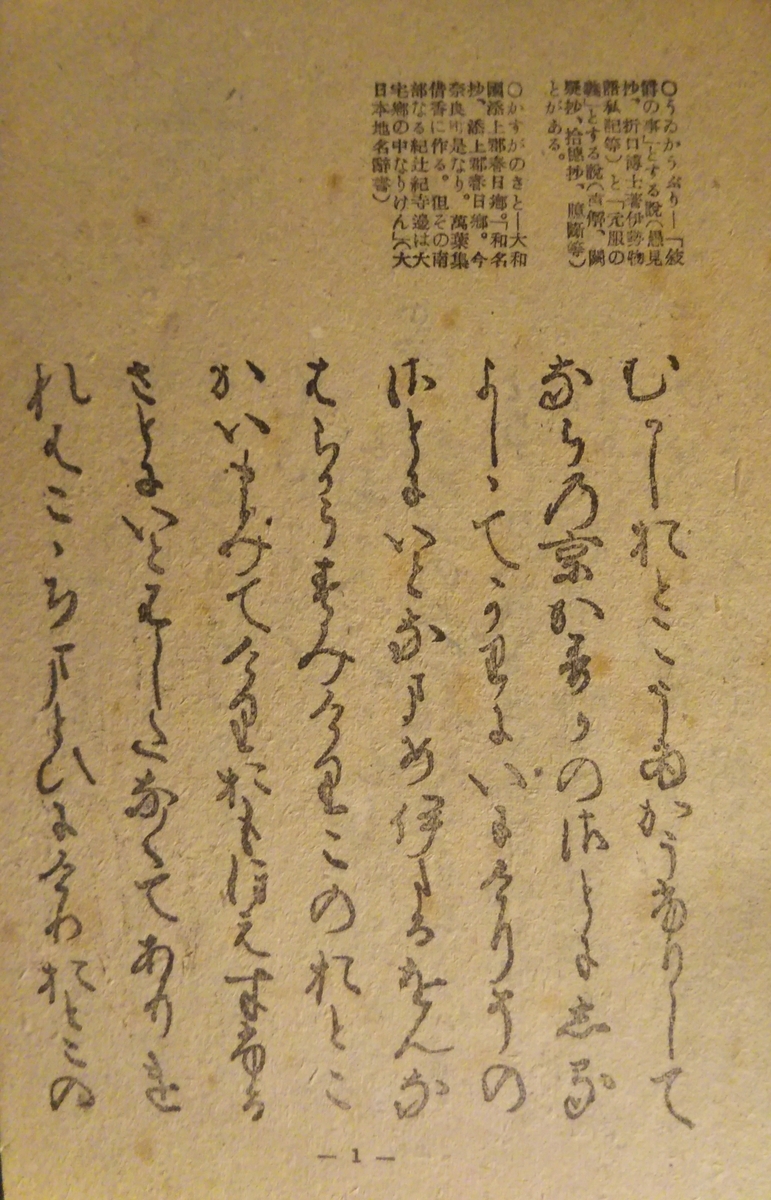 ○うゐかうぶり―「敍
爵の事」とする說(愚見
抄、折口博士著伊勢物
語私記等)と「元服の
義」とする說(直解、闕
疑抄、拾穗抄、臆斷等)
とがある。
○かすがのさと―大和
國添上郡春日鄕。「和名
抄、添上郡春日鄕。今
奈良町是なり。萬葉集
借香に作る。但その南
部なる紀辻紀寺邊は大
宅鄕の中なりけん」(大
日本地名辭書)
むかしおとこうゐかうふりして
なら乃京かすかのさとにしる
よしゝてかりにいにけりその
さとにいとなまめ伊たるをんな
はらからすみけりこのおとこ
かいまみてけりおもほえすふる
さとにいとはしたなくてありけ
れはこゝちまとひにけりおとこの
— 1 —